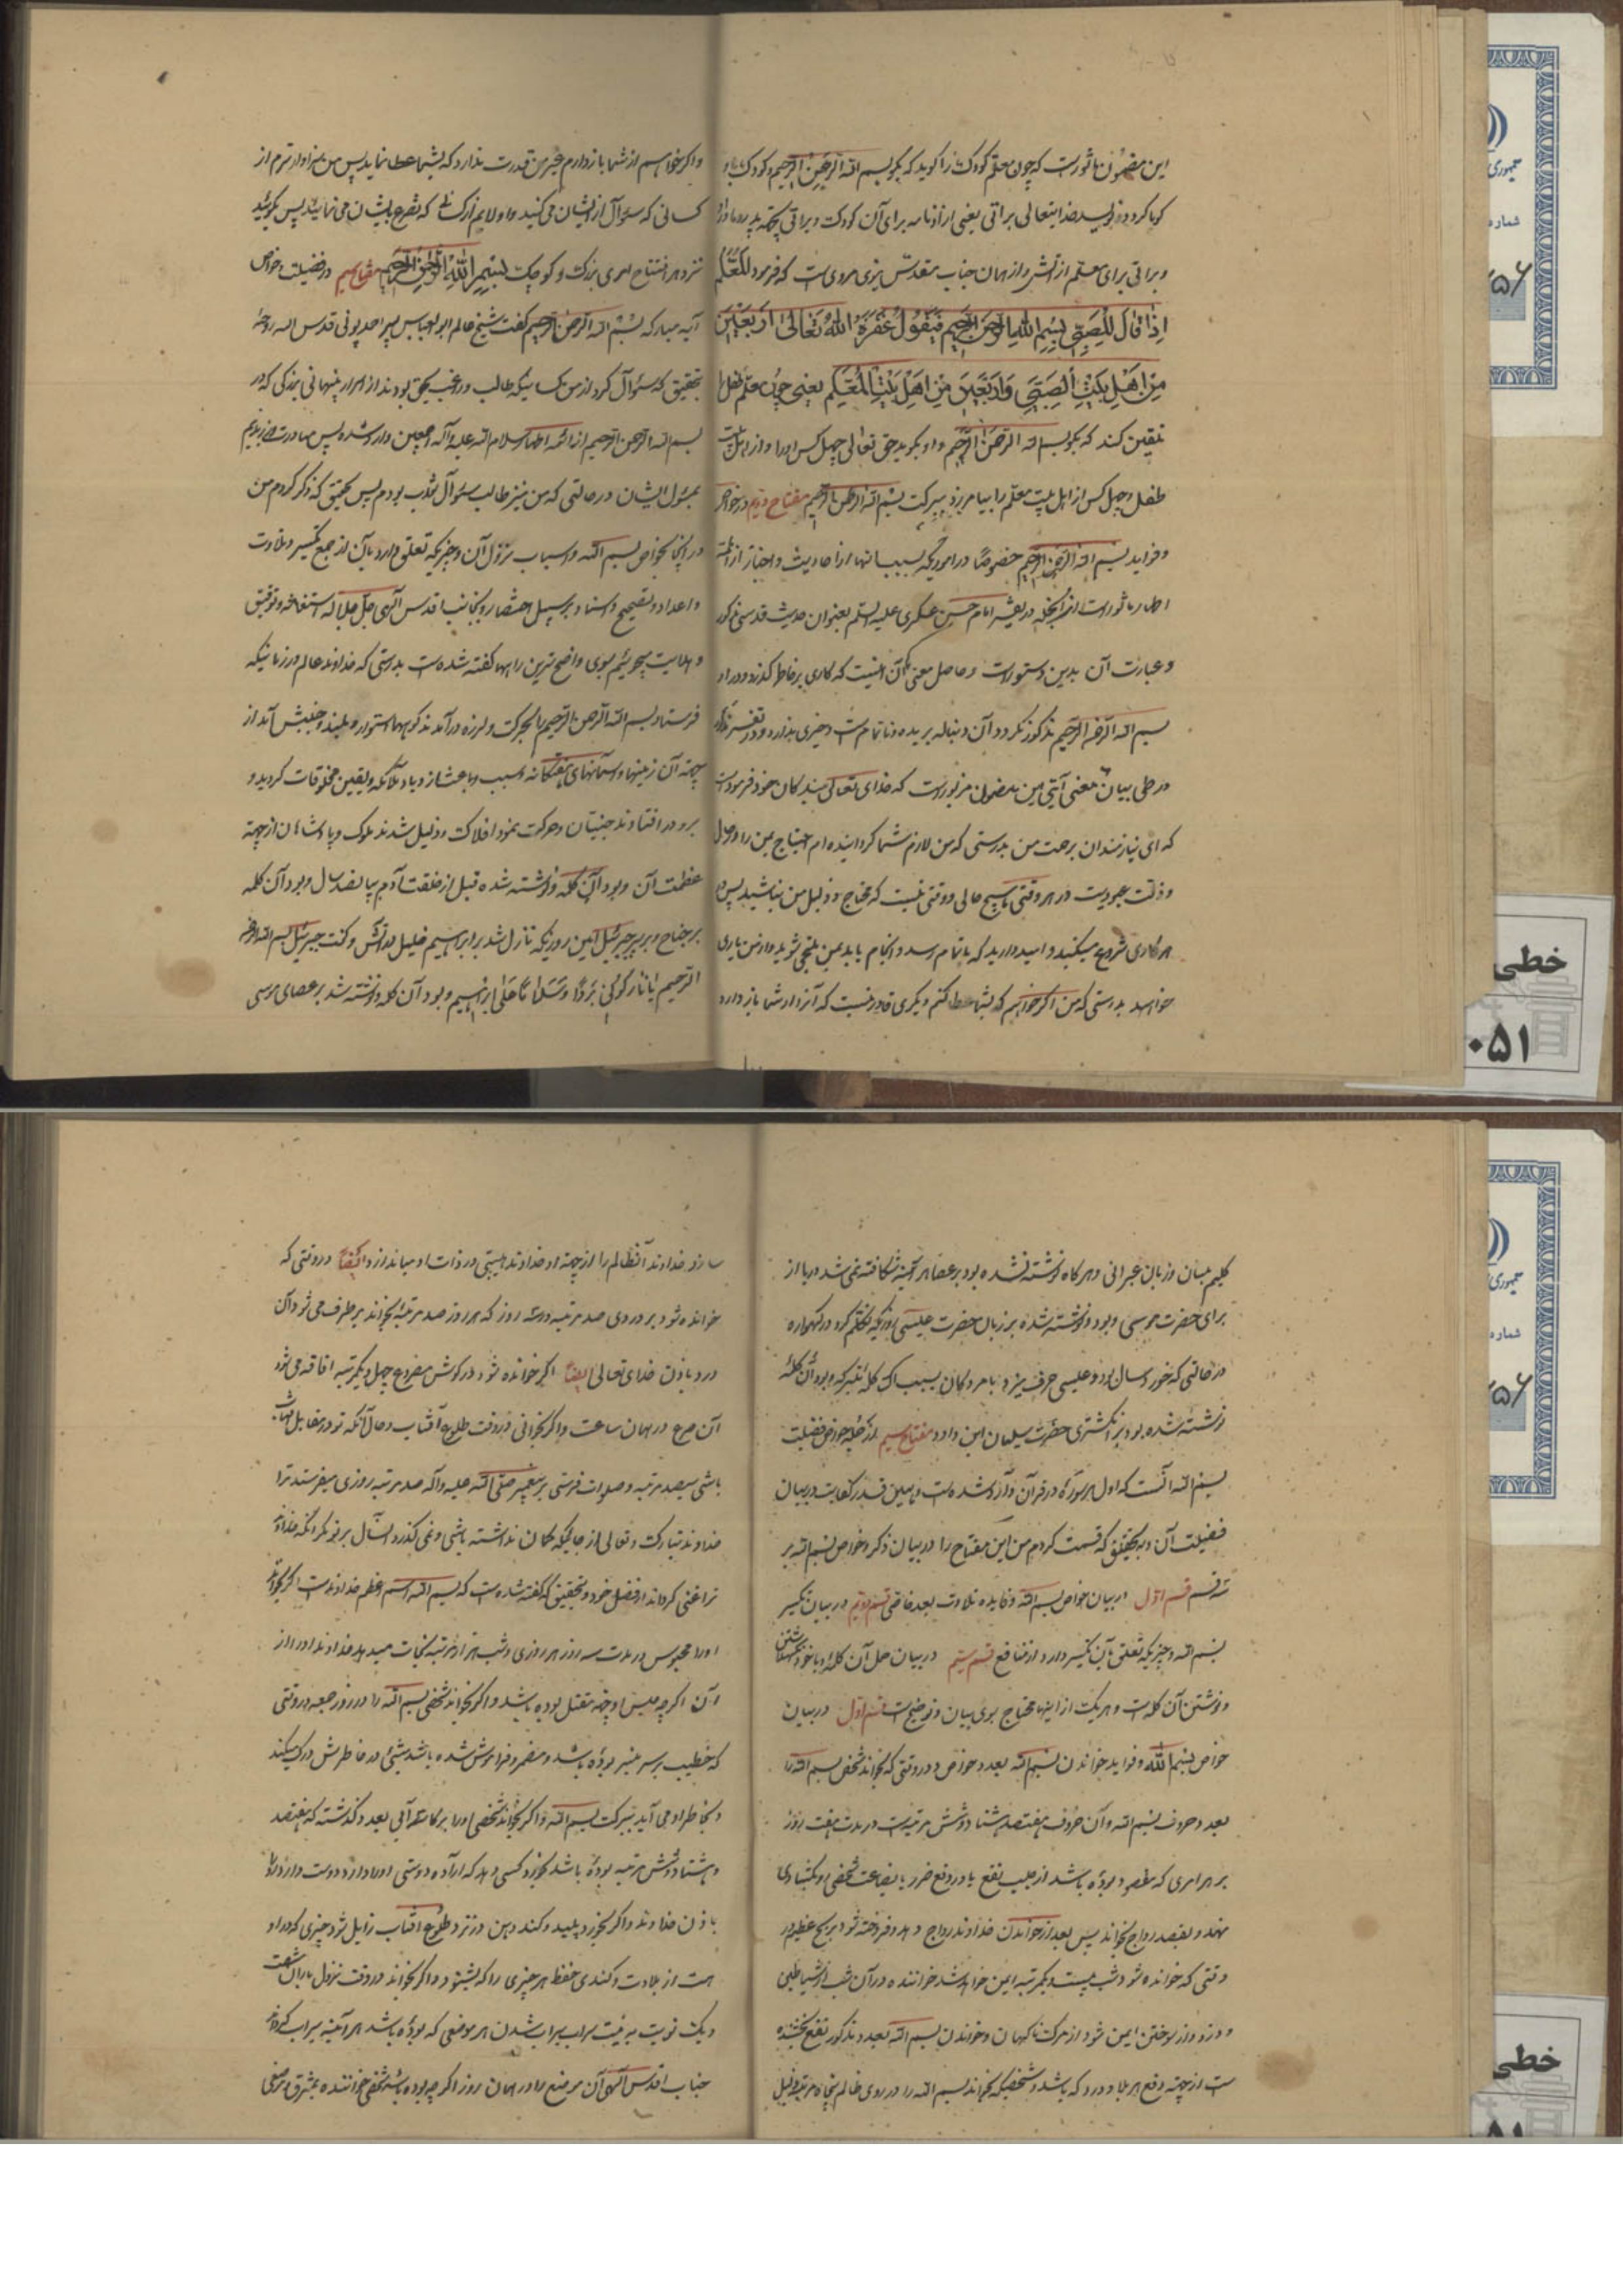 این مضمون ماثورست که چون معلم کودک را گوید که بگو بسم الله الرحمن الرحیم و کودک با او
گویا گردد بنویسد خدایتعالی براتی یعنی آزادنامه برای آن کودک و براتی بجهة پدر و مادر او
و براتی برای معلم از آتش و از همان جناب مقدس نیز مرویست که فرمود المعلم
اذا قال للصبی بسم الله الرحمن الرحیم فیقول غفر الله تعالی اربعین
من اهل بیت الصبی و اربعین من اهل بیت المعلم یعنی چون معلم طفل را
تلقین کند که بگو بسم الله الرحمن الرحیم و او بگوید حق تعالی چهل کس او را و از اهل بیت
طفل و چهل کس از اهل بیت معلم را بیامرزد ببرکت بسم الله الرحمن الرحیم مفتاح دویم در خواص
و فواید بسم الله الرحمن الرحیم خصوصا در اموریکه بسبب آنها از احادیث و اخبار از ائمه
اطهار ماثورست از آنجمله در تفسیر امام حسن عسکری علیه السلم بعنوان حدیث قدسی مذکور
و عبارت آن بدین دستورست و حاصل معنی آن اینست که کاری بر خاطر گذرد و در او
بسم الله الرحمن الرحیم مذکور نگردد آن دنباله بریده و ناتمام ست و خیری ندارد و در تفسیر مذکور
در طی بیان معنی آیتی این مضمون مزبورست که خدای تعالی ببندکان خود فرموده است
که ای نیازمندان برحمت من بدرستی که من لازم شما گردانیده ام احتیاج بمن را در هر حال
و ذلت عبودیت در هر وقتی تا هیچ حالی و وقتی نیست که محتاج و ذلیل من نباشید پس در
هر کاری شروع میکنید و امید دارید که باتمام رسد و انجام یابد بمن ملتجی شوید و از من یاری
خواهید بدرستی که من اگر خواهم که بشما عطا کنم دیگری قادر نیست که آنرا از شما باز دارد
و اگر خواهم از شما باز دارم غیر من قدرت ندارد که بشما عطا نماید پس من سزاوارترم از
کسانی که سئوال از ایشان می کنید و اولایم از کسانی که تضرع بایشان می نمائید پس بگوئید
نزد هر افتتاح امری بزرگ و کوچک بسم الله الرحمن الرحیم مفتاح سیم در فضیلت و خواص
آیه مبارکه بسم الله الرحمن الرحیم گفت شیخ عالم ابو العباس پسر احمد بونی قدس الله روحه
بتحقیق که سئوال کرد از من کسانیکه طالب و راغب بحق بودند از اسرار پنهانی بزرگی که در
بسم الله الرحمن الرحیم از ائمه اطهار سلام الله علیه و آله اجمعین وارد شده پس مبادرت ورزیدم
بمسئول ایشان در حالتی که من نیز طالب سئوال ثواب بودم پس بتحقیق که ذکر کردم من
در اینجا خواص بسم الله و اسباب نزول آن و چیزیکه تعلق دارد بآن از جمع تکسیر و تلاوت
و اعداد و تصحیح و اسناد بر سبیل اختصار و بجناب اقدس الهی جل جلاله استغاثه و توفیق
و هدایت میجوئیم بسوی واضح ترین راهها گفته شده ست بدرستی که خداوند عالم در زمانیکه
فرستاد بسم الله الرحمن الرحیم بالحرکت و لرزه در آمدند کوههای استوار و بلند و جنبش آمد از
جهة آن زمینها و آسمانهای هفتگانه و سبب و باعث ازدیاد ملائکه و یقین مخلوقات گردید و
برو در افتادند جنیان و حرکت نمود افلاک و ذلیل شدند ملوک و پادشاهان از جهة
عظمت آن و بود آن کلمه نوشته شده قبل از خلقت آدم بپانصد سال و بود آن کلمه
بر جناح و بر پر جبرئیل امین روزیکه نازل شد بر ابراهیم خلیل در آتش و گفت جبرئیل بسم الله الرحمن
الرحیم یا نار کونی بردا و سلاما علی ابراهیم و بود آن کلمه نوشته شد بر عصای موسی
کلیم بیان و زبان عبرانی و هر گاه نوشته نشده بود بر عصا هر آینه شکافته نمی شد دریا از
برای حضرت موسی و بود نوشته شده بر زبان حضرت عیسی روزیکه تکلم کرد در گهواره
در حالتی که خورد سال بود و عیسی حرف میزد با مردمان بسبب آن کلمه متبرکه و بود آن کلمه
نوشته شده بود بر انگشتری حضرت سلیمان ابن داود مفتاح سیم از جمله خواص فضیلت
بسم الله آنست که اول هر سوره در قرآن وارد شده ست و همین قدر کفایت در بیان
فضیلت آن و بتحقیق که قسمت کردم من این مفتاح را در بیان ذکر خواص بسم الله بر
سه قسم قسم اول در بیان خواص بسم الله و فایده تلاوت بعدد خاص قسم دویم در بیان تکسیر
بسم الله و چیزیکه تعلق بآن تکسیر دارد از منافع قسم سیم در بیان حمل آن کلمه با خود نگهداشتن
و نوشتن آن کلمه ست و هر یک از اینها محتاج بسوی بیان و توضیح ست قسم اول در بیان
خواص بسم الله و فواید خواندن بسم الله بعدد خواص در وقتی که بخواند شخص بسم الله را
بعدد حروف بسم الله و آن حروف هفتصد هشتاد و شش مرتبه ست در مدت هفت روز
بر هر امری که مقصود بوده باشد از جلب نفع یا در دفع ضرر یا بضاعت شخصی رو بکسادی
نهد و بقصد رواج بخواند پس بعد از خواندن خداوند رواج دهد و فروخته شود بربح عظیم در
وقتی که خوانده شود شب بیست و یکمرتبه ایمن خواهد شد خواننده در آن شب از شیاطین
و دزد و از سوختن ایمن شود از مرگ ناگهان و خواندن بسم الله بعدد مذکور نفع بخشنده
ست از جهة دفع هر بلا و درد که باشد و شخصیکه بخواند بسم الله را در روی ظالم پنجاه مرتبه ذلیل
سازد خداوند آن ظالم را از جهة او خداوند هیبتی در ذات او میاندازد ایضا در وقتی که
خوانده شود بر دردی صد مرتبه در سه روز که هر روز صد مرتبه بخواند بر طرف می شود آن
درد باذن خدای تعالی ایضا اگر خوانده شود در گوش مصروع چهل و یکمرتبه افاقه می شود
آن صرع در همان ساعت و اگر بخوانی در وقت طلوع آفتاب و حال آنکه تو در مقابل آفتاب
باشی سیصد مرتبه و صلوات فرستی بر پیغمبر صلی الله علیه و آله صد مرتبه روزی میفرستد ترا
خداوند تبارک و تعالی از جائیکه گمان نداشته باشی و نمی گذرد آن سال بر تو مگر آنکه خداوند
ترا غنی گرداند از فضل خود و بتحقیق که گفته شده ست که بسم الله اسم اعظم خداوندست اگر بخواند
او را محبوس در مدت سه روز هر روزی و شب هزار مرتبه نجات میدهد خداوند او را از
آن اگر چه حبس او جهة مقتل بوده باشد و اگر بخواند شخصی بسم الله را در روز جمعه در وقتی
که خطیب بر سر منبر بوده باشد و مضمر و فراموش شده باشد شیئ در خاطرش درک میکند
و بخاطر او می آید ببرکت بسم الله و اگر بخواند شخصی او را بر کاسه آبی بعدد گذشته که هفتصد
و هشتاد و شش مرتبه بوده باشد بخورد کسی دهد که اراده دوستی او را دارد دوست دارد او را
باذن خداوند و اگر بخورد پلید و کند ذهن در نزد طلوع آفتاب زایل شود چیزی که در او
هست از بلادت و کندی حفظ هر چیزی را که بشنود و اگر بخواند در وقت نزول باران شصت
و یک نوبت به نیت سراب سیراب شدن هر موضعی که بوده باشد هر آینه سیراب گرداند
جناب اقدس الهی آن موضع را در همان روز اگر چه بوده باشد شخص خواننده بمشرق و موضعی
جمهوری
شماره
۲۵۶
خطی
۰۵۱
جمهوری
شماره
۲۵۶
خطی